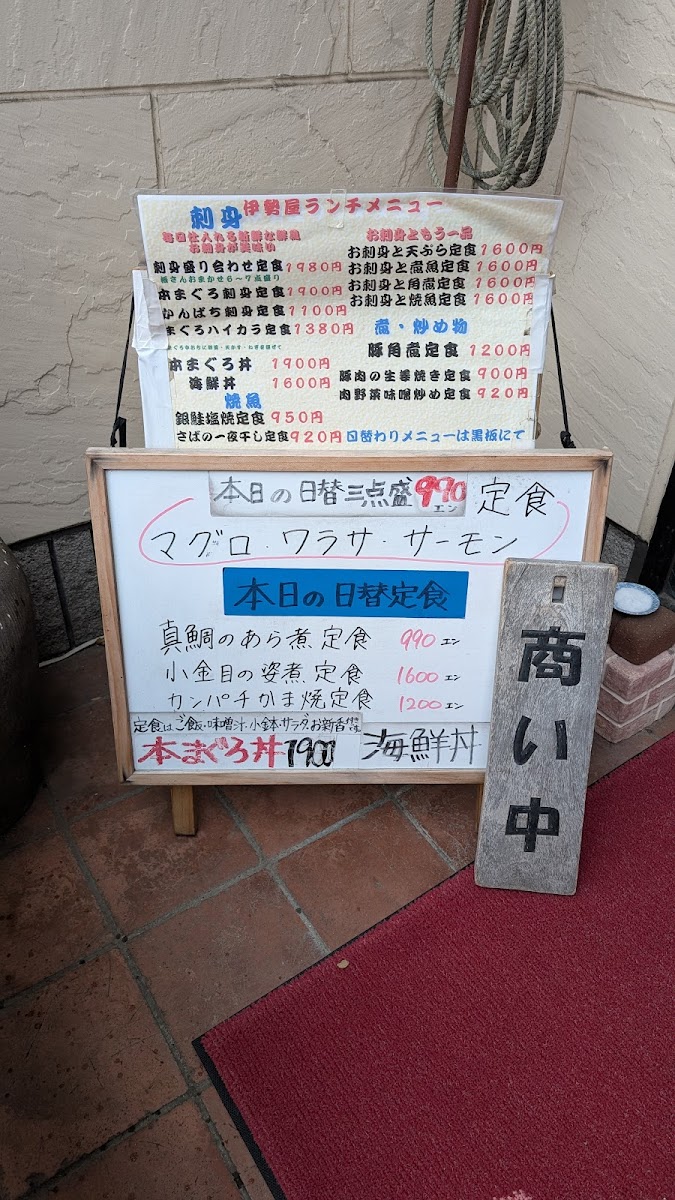 伊勢屋ランチメニュー
刺身
毎日仕入れる新鮮な鮮魚
お刺身が美味い
刺身盛り合わせ定食1980円
板さんおまかせ6～7点盛り
本まぐろ刺身定食1900円
かんぱち刺身定食1100円
まぐろハイカラ定食1380円
本まぐろ丼 1900円
海鮮丼 1600円
焼魚
銀鮭塩焼定食950円
さばの一夜干し定食920円
お刺身ともう一品
お刺身と天ぷら定食1600円
お刺身と煮魚定食1600円
お刺身と角煮定食1600円
お刺身と焼魚定食1600円
煮・炒め物
豚角煮定食 1200円
豚肉の生姜焼き定食900円
肉野菜味噌炒め定食920円
日替わりメニューは黒板にて
本日の日替三点盛990エン 定食
マグロ・ワラサ・サーモン
本日の日替定食
真鯛のあら煮定食 990エン
小金目の姿煮定食 1600エン
カンパチかま焼定食 1200エン
定食は、ご飯・味噌汁・小鉢・サラダ・お新香付き
本まぐろ丼1900 海鮮丼
商い中